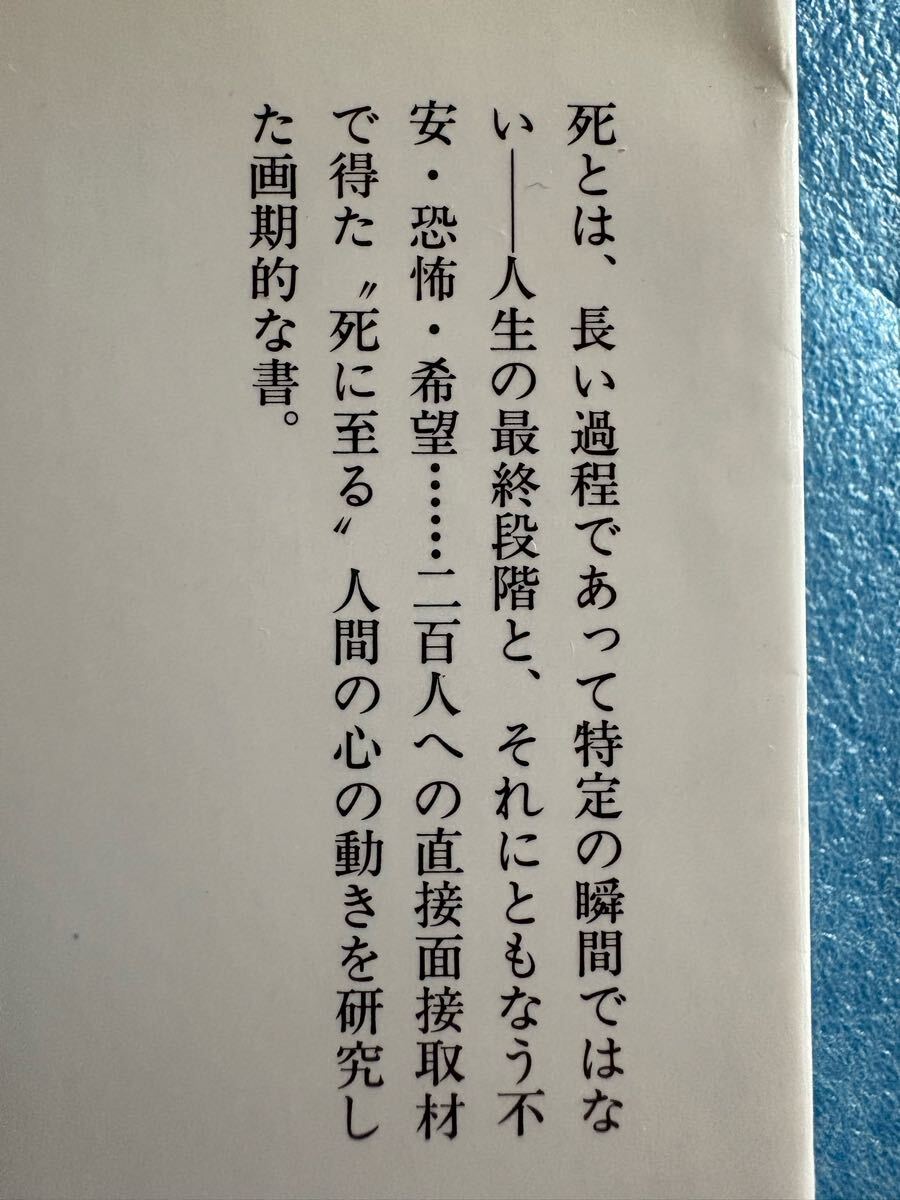 死とは、長い過程であって特定の瞬間ではな
い――人生の最終段階と、それにともなう不
安・恐怖・希望……二百人への直接面接取材
で得た〝死に至る〟人間の心の動きを研究し
た画期的な書。